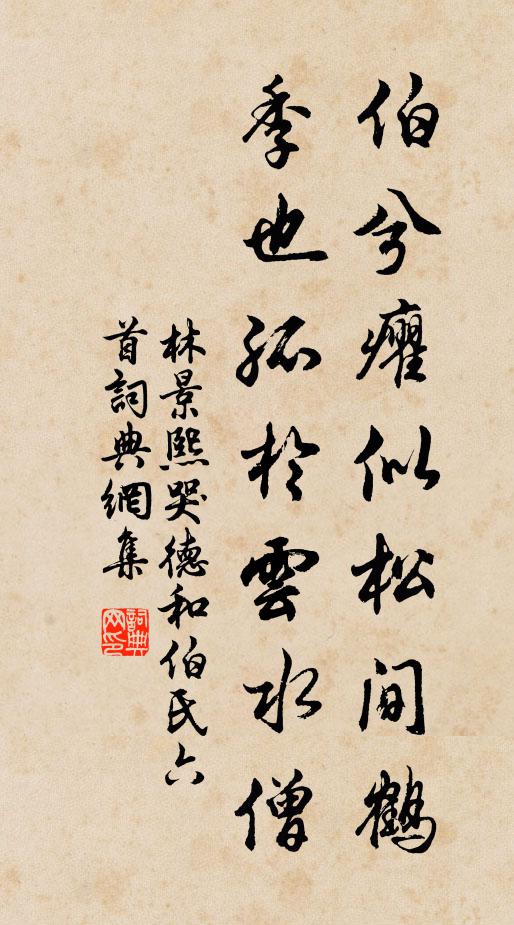 伯兮癯似松間鶴
季也孤於雲水僧
林景熙哭德和伯氏六
首詞典網集
詞典網印